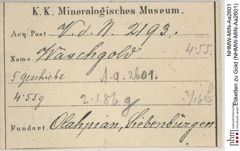 K. K. Mineralogisches Museum.
Acq. Post V. d. N. 2193.
Name Waschgold 4·55
5 Geschiebe A.a. 2601.
4·55 g 2·186 g
Fundort Olahpian, Siebenbürgen.
NHMW-MIN-Aa2601
Etiketten zu Gold (NHMW-MIN-Aa2601)